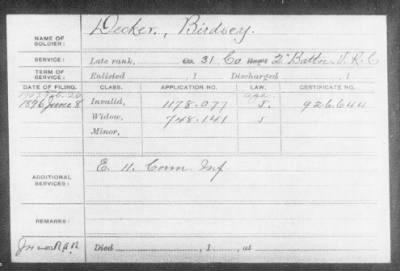 NAME OF SOLDIER: Decker, Birdsey.
SERVICE: Late rank, Co. 31 Co. Reg't 2" Battn. V. R. C
TERM OF SERVICE: Enlisted , 1 Discharged , 1
DATE OF FILING. CLASS. APPLICATION NO. LAW. CERTIFICATE NO.
1896 June 8 Invalid, 1178.077 S. 926.644
Widow, 748.141 S
Minor,
ADDITIONAL SERVICES: E. 11. Conn Inf
REMARKS:
Died , 1 , at